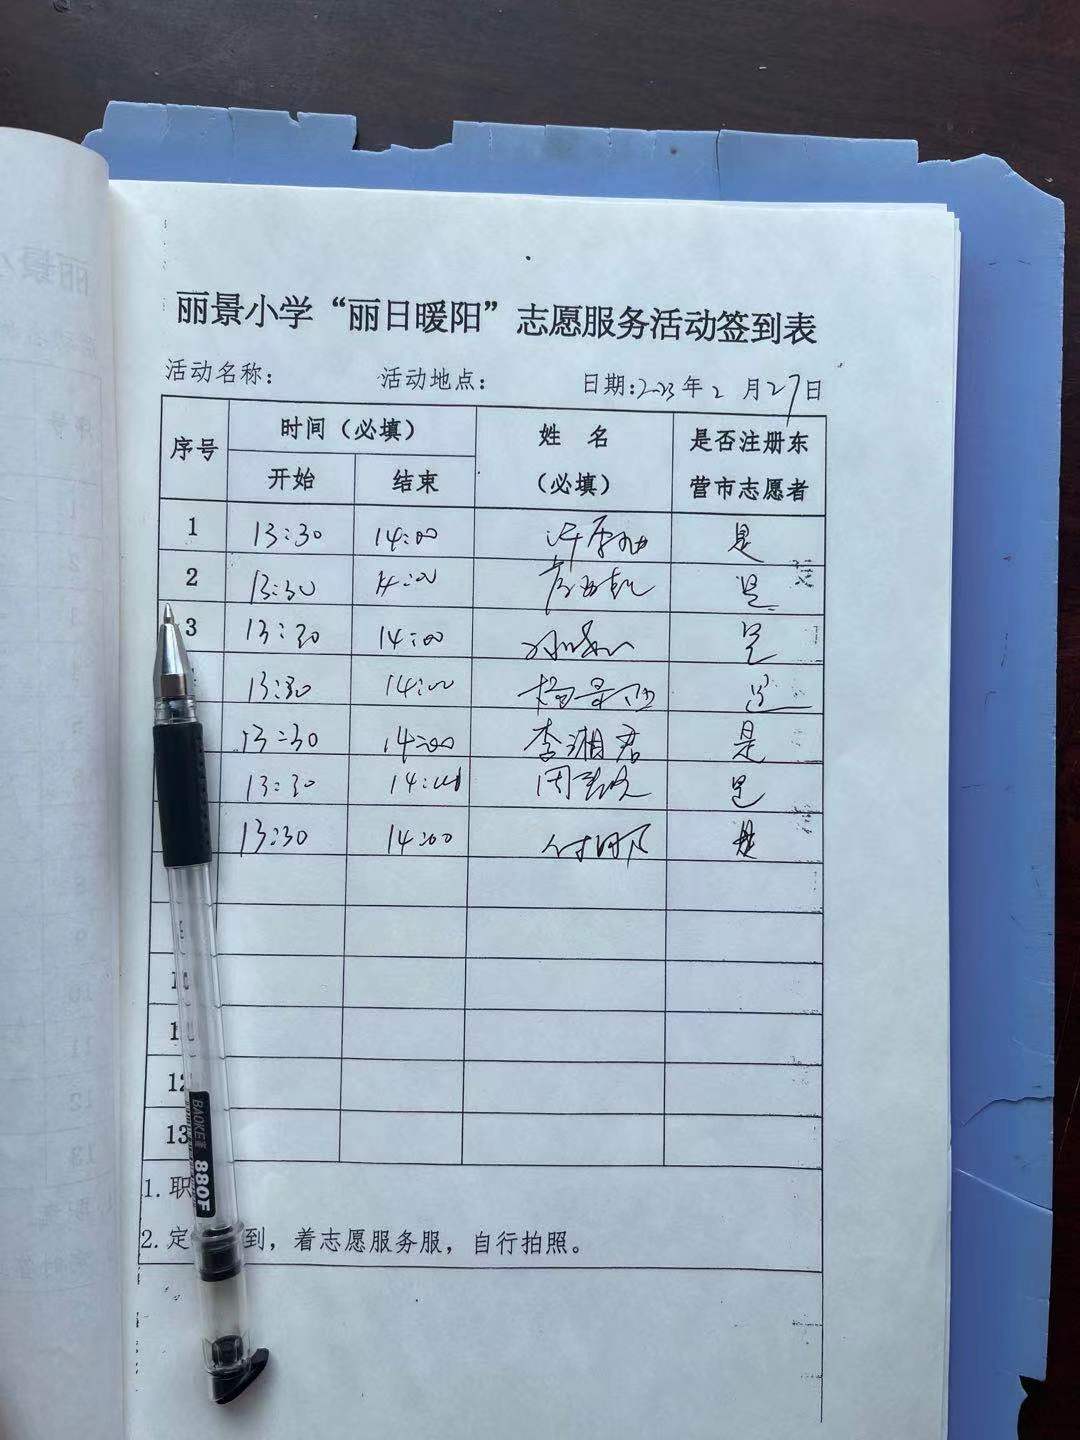 丽景小学“丽日暖阳”志愿服务活动签到表
活动名称： 活动地点： 日期：2023年2月27日
序号 时间（必填） 姓 名（必填） 是否注册东营市志愿者
开始 结束
1 13:30 14:00 是
2 13:30 14:00 是
3 13:30 14:00 是
13:30 14:00 是
13:30 14:00 李湘君 是
13:30 14:00 是
13:30 14:00 是
12
13
1. 职
2. 定 到，着志愿服务服，自行拍照。
BAOKE 880F